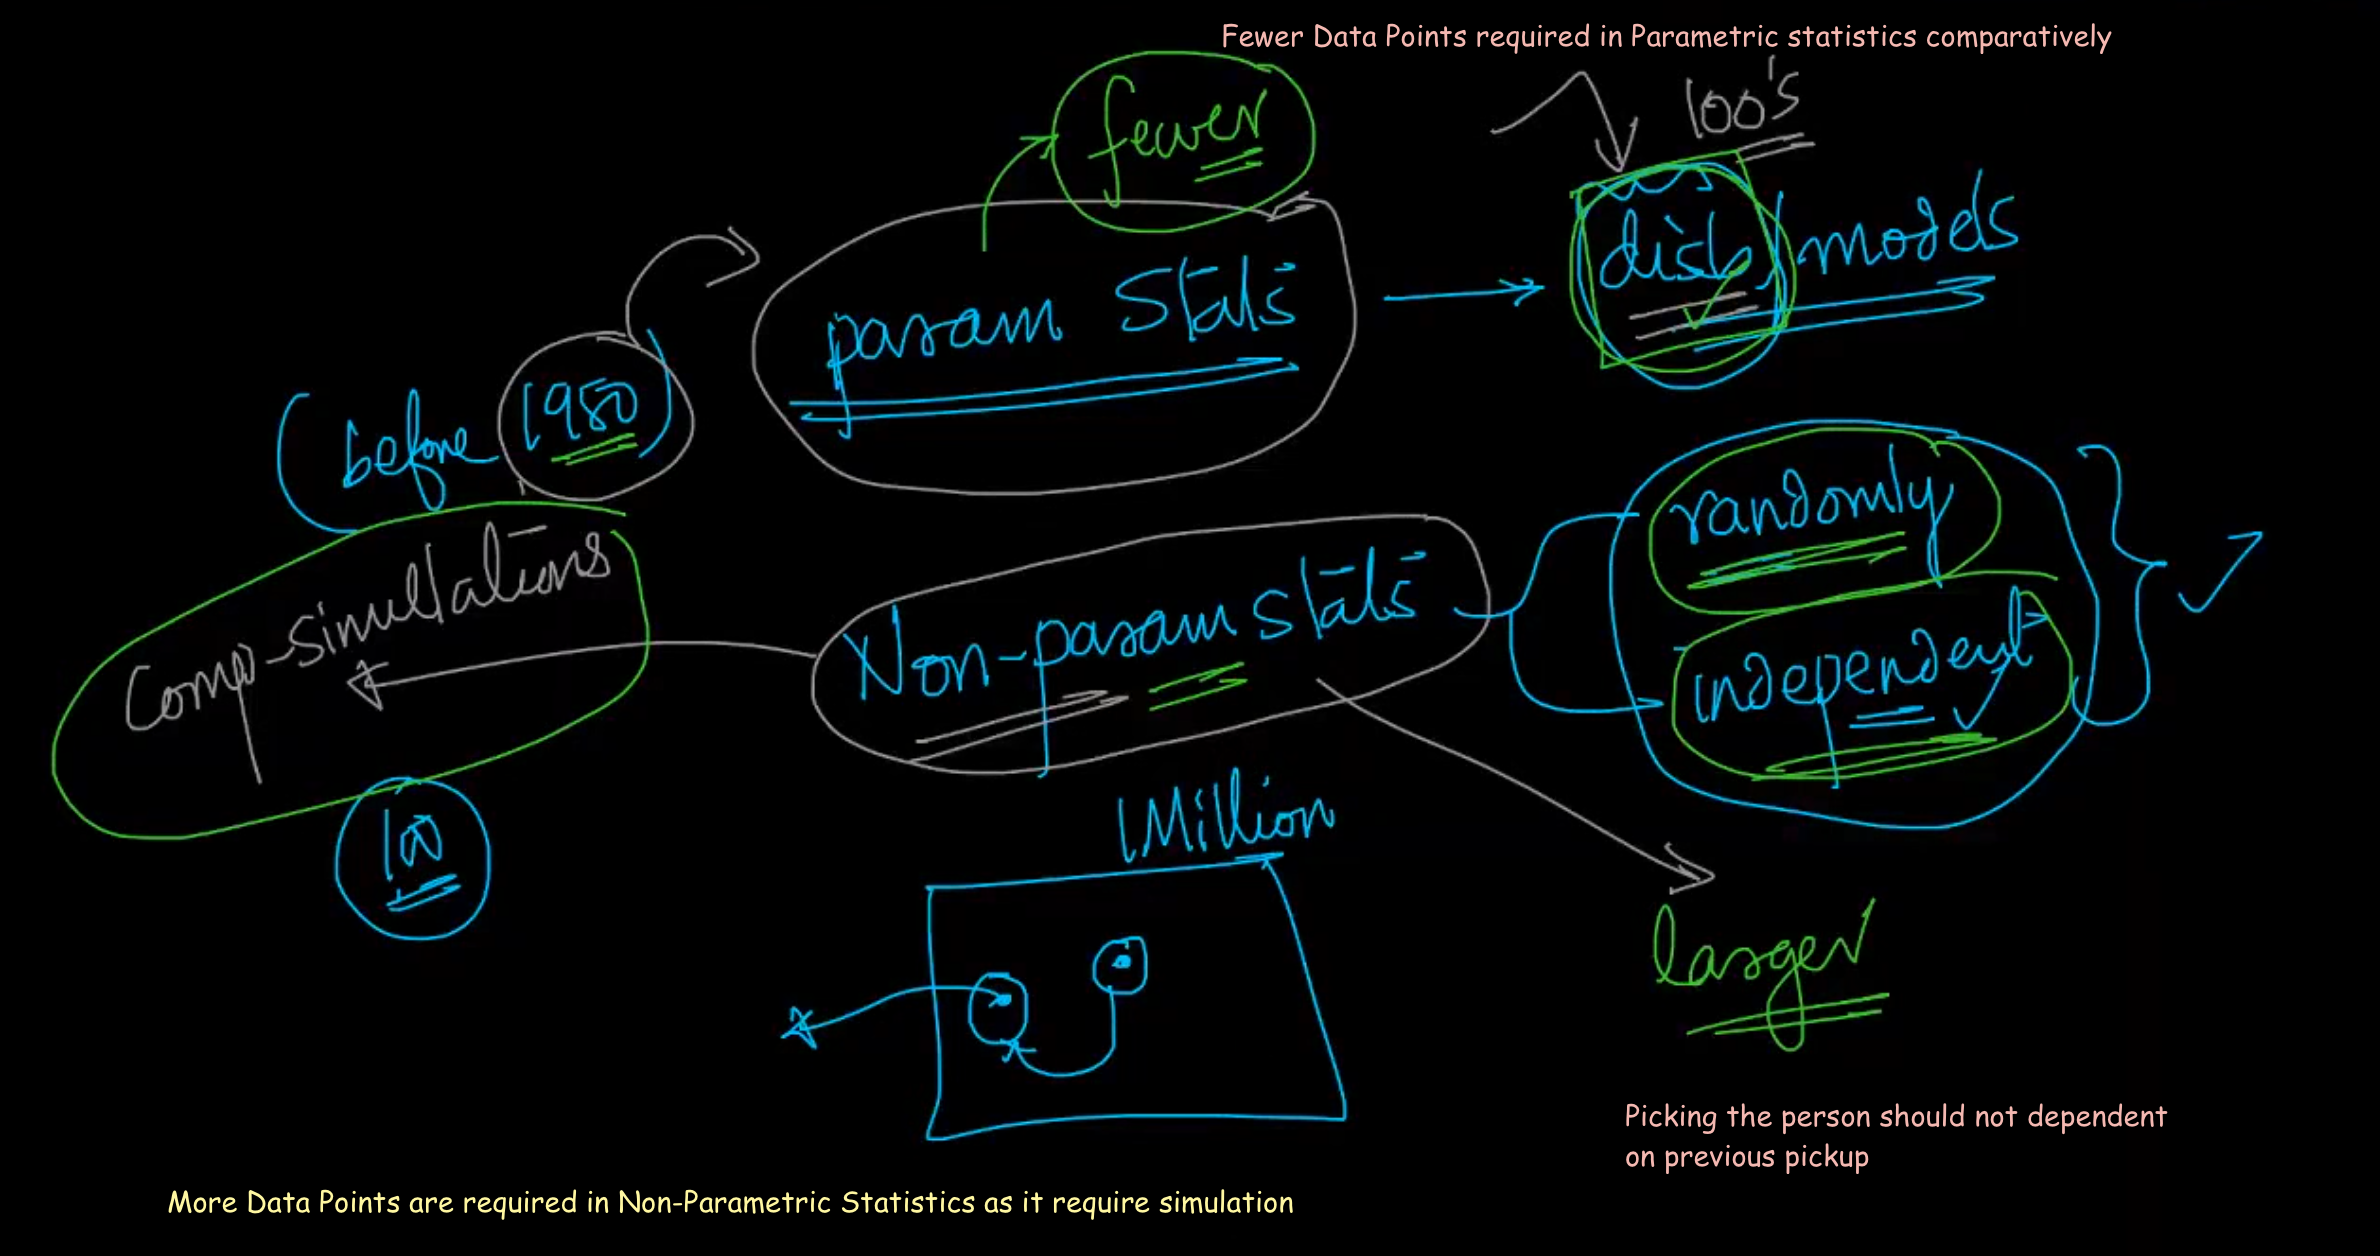 Fewer Data Points required in Parametric statistics comparatively
fewer
100's
param Stats
models
(before 1980)
randomly
Comp-simullations
Non-param stats
independent
1Million
100
larger
Picking the person should not dependent
on previous pickup
More Data Points are required in Non-Parametric Statistics as it require simulation